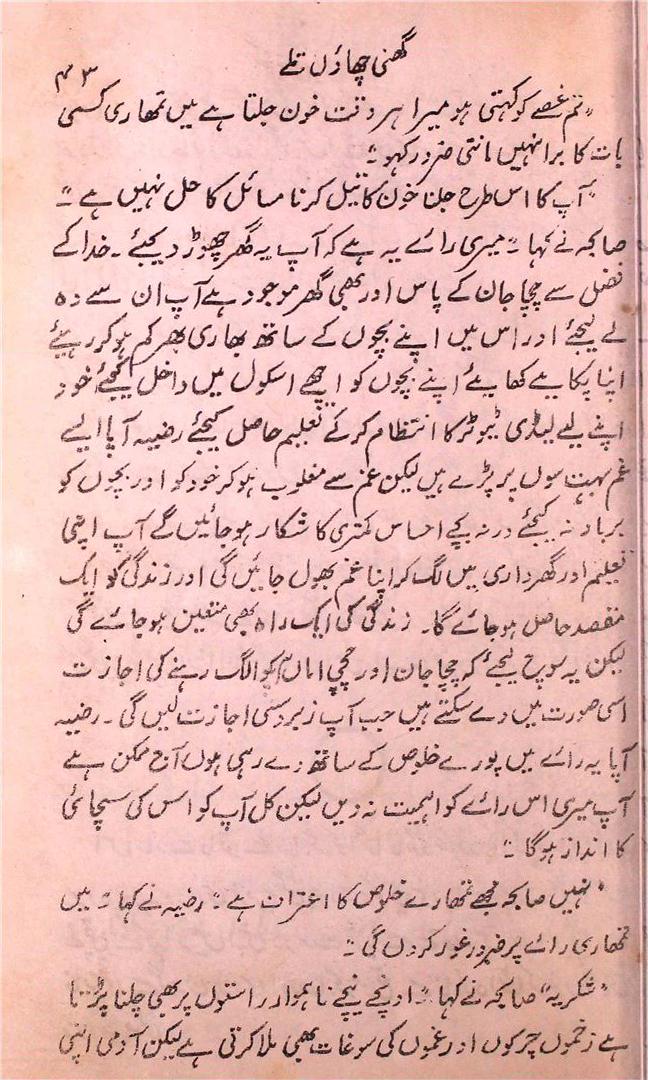 گھنی چھاؤں تلے
۳۴
"تم غصے کو کہتی ہو میرا ہر وقت خون جلتا ہے میں تمھاری کسی
بات کا برا نہیں مانتی ضرور کہو"
"آپ کا اس طرح جلنا خون کا تیل کرنا مسائل کا حل نہیں ہے"
صابحہ نے کہا "میری رائے یہ ہے کہ آپ یہ گھر چھوڑ دیجئے۔ خدا کے
فضل سے چچا جان کے پاس اور بھی گھر موجود ہے آپ ان سے وہ
لے لیجئے اور اس میں اپنے بچوں کے ساتھ بھاری بھر کم ہو کر رہیئے
اپنا پکایئے کھایئے اپنے بچوں کو اچھے اسکول میں داخل کیجئے خود
اپنے لیے لیڈی ٹیوٹر کا انتظام کر کے تعلیم حاصل کیجئے رضیہ آپا ایسے
غم بہت سوں پر پڑے ہیں لیکن غم سے مغلوب ہو کر خود کو اور بچوں کو
برباد نہ کیجئے ورنہ بچے احساس کمتری کا شکار ہو جائیں گے آپ اپنی
تعلیم اور گھرداری میں لگ کر اپنا غم بھول جائیں گی اور زندگی کو ایک
مقصد حاصل ہو جائے گا۔ زندگی کی ایک راہ بھی متعین ہو جائے گی
لیکن یہ سوچ لیجئے کہ چچا جان اور چچی اماں آپ کو الگ رہنے کی اجازت
اسی صورت میں دے سکتے ہیں جب آپ زبردستی اجازت لیں گی۔ رضیہ
آپا یہ رائے میں پورے خلوص کے ساتھ دے رہی ہوں آج ممکن ہے
آپ میری اس رائے کو اہمیت نہ دیں لیکن کل آپ کو اس کی سچائی
کا انداز ہوگا"
"نہیں صابحہ مجھے تمھارے خلوص کا اعتراف ہے" رضیہ نے کہا "میں
تمھاری رائے پر ضرور غور کروں گی"
"شکریہ" صابحہ نے کہا "اونچے نیچے ناہموار راستوں پر بھی چلنا پڑتا
ہے زخموں چرکوں اور غموں کی سوغات بھی ملا کرتی ہے لیکن آدمی اپنی